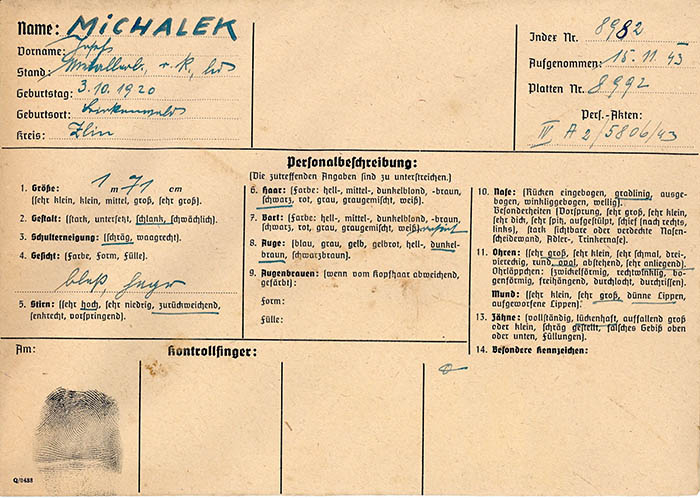 Name: MiCHALEK
Vorname: Josef
Stand: r. k., led
Geburtstag: 3. 10. 1920
Geburtsort:
Kreis: Zlin
Index Nr. 8982
Aufgenommen: 15. 11. 43
Platten Nr. 8992
Pers.-Akten:
IV A 2/5806/43
Personalbeschreibung:
(Die zutreffenden Angaben sind zu unterstreichen.)
1. Größe: 1 m 71 cm
(sehr klein, klein, mittel, groß, sehr groß).
2. Gestalt: (stark, untersetzt, schlank, schwächlich).
3. Schulterneigung: (schräg, waagrecht).
4. Gesicht: (Farbe, Form, Fülle).
blaß, hager
5. Stirn: (sehr hoch, sehr niedrig, zurückweichend,
senkrecht, vorspringend).
6. Haar: (Farbe: hell-, mittel-, dunkelblond, -braun,
schwarz, rot, grau, graugemischt, weiß).
7. Bart: (Farbe: hell-, mittel-, dunkelblond, -braun,
schwarz, rot, grau, graugemischt, weiß) rasiert
8. Auge: (blau, grau, gelb, gelbrot, hell-, dunkel-
braun, schwarzbraun).
9. Augenbrauen: (wenn vom Kopfhaar abweichend,
gefärbt):
Form:
Fülle:
10. Nase: (Rücken eingebogen, gradlinig, ausge-
bogen, winkliggebogen, wellig).
Besonderheiten (Vorsprung, sehr groß, sehr klein,
sehr dick, sehr spitz, aufgestülpt, schief (nach rechts,
links), stark sichtbare oder verdeckte Nasen-
scheidewand, Adler-, Trinkernase).
11. Ohren: (sehr groß, sehr klein, sehr schmal, drei-,
viereckig, rund, oval, abstehend, sehr anliegend).
Ohrläppchen: (zwickelförmig, rechtwinklig, bo-
genförmig, freihängend, durchlocht, durchrissen).
Mund: (sehr klein, sehr groß, dünne Lippen,
aufgeworfene Lippen).
13. Zähne: (vollständig, lückenhaft, auffallend groß
oder klein, schräg gestellt, falsches Gebiß oben
oder unten, Füllungen).
14. Besondere Kennzeichen:
Am:
Kontrollfinger:
Q/0488